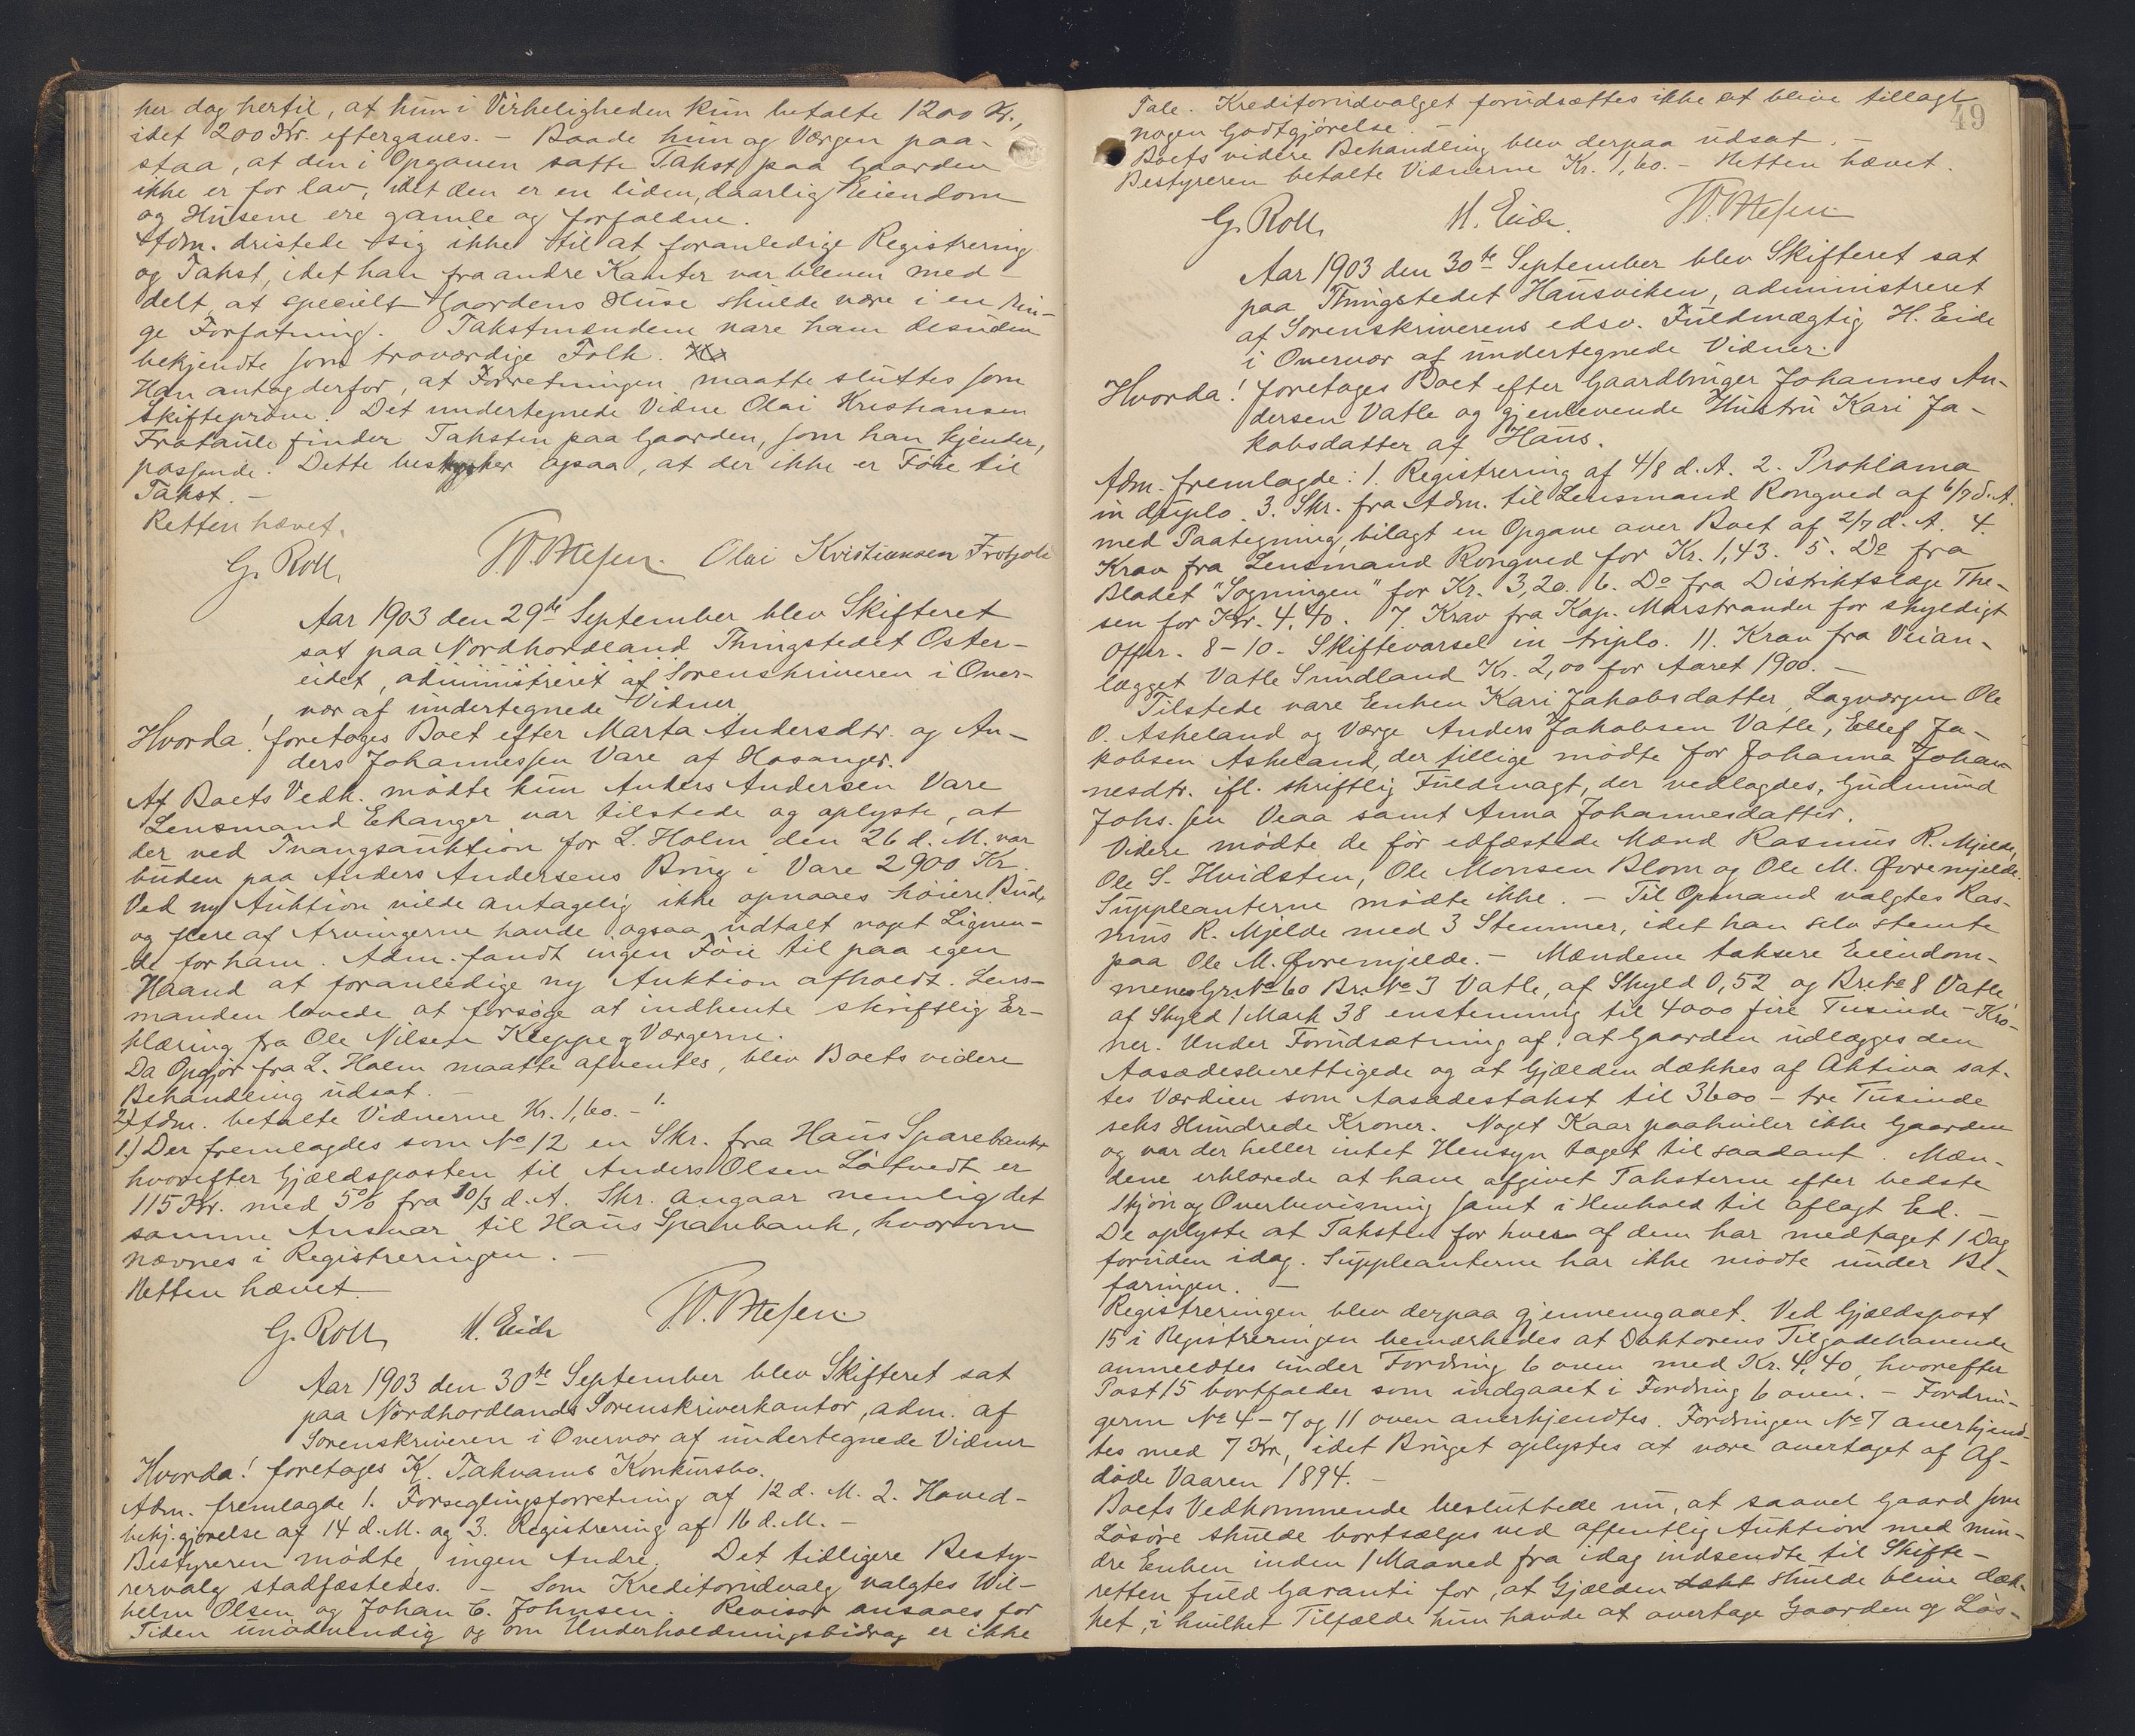 her dog hertil, at hun i Virkeligheden kun betalte 1200 Kr.,
idet 200 Kr. eftergaves. - Baade hun og Værgen paa-
staa, at den i Opgaven satte Takst paa Gaarden
ikke er for lav, idet den er en liden, daarlig Eiendom
og Husene ere gamle og forfaldne.
Adm. dristede sig ikke til at foranledige Registrering
og Takst, idet han fra andre Kanter var bleven med-
delt at specielt Gaardens Huse skulde være i en rin-
ge Forfatning. Takstmændene vare ham desuden
bekjendte som troværdige Folk.
Han antog derfor, at Forretningen maatte sluttes som
Skifteprøve. Det undertegnede Vidne Olai Kristiansen
Frotaule finder Taksten paa Gaarden, som han kjender,
passende. Dette bestyrker ogsaa, at der ikke er Føie til
Takst. -
Retten hævet.
G. Roll. Olai Kristiansen
Aar 1903 den 29de September blev Skifteret
sat paa Nordhordland Thingstedet Oster-
eidet, administreret af Sorenskriveren i Over-
vær af undertegnede Vidner.
Hvorda! foretoges Boet efter Marta Andersdtr. og An-
ders Johannessen Vare af Hosanger.
Af Boets Vedk. mødte kun Anders Andersen Vare
Lensmand Ekanger var tilstede og oplyste, at
der ved Tvangsauktion for L. Holm den 26 d. M. var
buden paa Anders Andersens Brug i Vare 2900 Kr.
Ved ny Auktion vilde antagelig ikke opnaaes høiere Bud,
og flere af Arvingerne havde ogsaa udtalt noget Lignen-
de for ham. Adm. fandt ingen Føie til paa egen
Haand at foranledige ny Auktion afholdt. Lens-
manden lovede at forsøge at indhente skriftlig Er-
klæring fra Ole Nilsen Kleppe og Værgerne.
Da Opgjør fra L. Holm maatte afventes, blev Boets videre
Behandling udsat. -
2) Adm. betalte Vidnerne Kr. 1,60. -
1) Der fremlagdes som No 12 en Skr. fra Haus Sparebank,
hvorefter Gjældsposten til Anders Olsen Løtvedt er
115 Kr. med 5% fra 10/3 d. A. Skr. angaar nemlig det
samme Ansvar til Haus Sparebank, hvorom
nævnes i Registreringen. -
Retten hævet.
G. Roll H. Eide
Aar 1903 den 30te September blev Skifteret sat
paa Nordhordlands Sorenskriverkontor, adm. af
Sorenskriveren i Overvær af undertegnede Vidner
Hvorda! foretoges K. Takvams Konkursbo.
Adm. fremlagde 1. Forseglingsforretning af 12 d. M. 2. Hoved-
bekj.gjørelse af 14 d. M. og 3. Registrering af 16 d. M. -
Bestyreren mødte ingen Andre. Det tidligere Besty-
rervalg stadfæstedes. - Som Kreditorudvalg valgtes Wil-
helm Olsen og Johan C. Johnsen. Revisor ansaaes for
Tiden unødvendig og om Underholdningsbidrag er ikke
49
Tale. Kreditorudvalget forudsættes ikke at blive tillagt
nogen Godtgjørelse. -
Boets videre Behandling blev derpaa udsat. -
Bestyreren betalte Vidnerne Kr. 1,60. - Retten hævet.
G. Roll. H. Eide.
Aar 1903 den 30te September blev Skifteret sat
paa Thingstedet Hausviken, administreret
af Sorenskriverens edsv. Fuldmægtig H. Eide
i Overvær af undertegnede Vidner.
Hvorda! foretoges Boet efter Gaardbruger Johannes An-
dersen Vatle og gjenlevende Hustru Kari Ja-
kobsdatter af Haus.
Adm. fremlagde: 1. Registrering af 4/8 d. A. 2. Proklama
in duplo. 3. Skr. fra Adm. til Lensmand Rongved af 6/7 d. A.
med Paategning, bilagt en Opgave over Boet af 2/7 d. A. 4.
Krav fra Lensmand Rongved for Kr. 1,43. 5. Do fra
Bladet "Søgningen" for Kr. 3,20. 6. Do fra Distriktslæge The-
sen for Kr. 4.40. 7. Krav fra Kap. Marstrander for skyldigt
Offer. 8-10. Skiftevarsel in triplo. 11. Krav fra Veian-
lægget Vatle Sundland Kr. 2,00 for Aaret 1900. -
Tilstede vare Enken Kari Jakobsdatter, Lagværgen Ole
O. Askeland og Værge Anders Jakobsen Vatle, Ellef Ja-
kobsen Askeland, der tillige mødte for Johanna Johan-
nesdtr. ifl. skriftlig Fuldmagt, der vedlagdes, Gudmund
Johs.sen Veaa samt Anna Johannesdatter.
Videre mødte de før edfæstede Mænd Rasmus R. Mjelde,
Ole S. Hvidsten, Ole Monsen Blom og Ole M. Øvremjelde.
Suppleanterne mødte ikke. - Til Opmand valgtes Ras-
mus R. Mjelde med 3 Stemmer, idet han selv stemte
paa Ole M. Øvremjelde. - Mændene taksere Eiendom-
mene Gr. No 60 Br. No 3 Vatle, af Skyld 0,52 og Br. No 8 Vatle
af Skyld 1 Mark 38 enstemmig til 4000 fire Tusinde - Kro-
ner. Under Forudsætning af, at Gaarden udlægges den
Aasædesberettigede og at Gjælden dækkes af Aktiva sat-
tes Værdien som Aasædestakst til 3600 - tre Tusinde
seks Hundrede Kroner. Noget Kaar paahviler ikke Gaarden
og var der heller intet Hensyn taget til saadant. Mæn-
dene erklærede at have afgivet Taksterne efter bedste
Skjøn og Overbevisning samt i Henhold til aflagt Ed. -
De oplyste at Taksten for hver af dem har medtaget 1 Dag
foruden idag. Suppleanterne har ikke mødte under Be-
faringen. -
Registreringen blev derpaa gjennemgaaet. Ved Gjældspost
15 i Registreringen bemærkedes at Doktorens Tilgodehavende
anmeldtes under Fordring 6 oven med Kr. 4,40, hvorefter
Post 15 bortfalder som indgaaet i Fordring 6 oven. - Fordrin-
gerne No 4-7 og 11 oven anerkjendtes. Fordringen No 7 anerkjend-
tes med 7 Kr., idet Bruget oplystes at være overtaget af Af-
døde Vaaren 1894. -
Boets Vedkommende besluttede nu, at saavel Gaard som
Løsøre skulde bortsælges ved offentlig Auktion med min-
dre Enken inden 1 Maaned fra idag indsendte til Skifte-
retten fuld Garanti for, at Gjælden skulde blive dæk-
ket, i hvilket Tilfælde hun havde at overtage Gaarden og Løs-